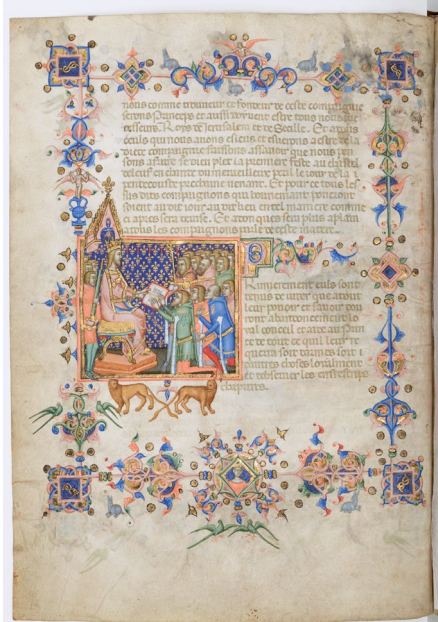 nous comme trouueur et fondeur de ceste compaignie
serons Princeps et aussi deyuent estre tous nous suc
cesseurs Roys de Jerusalem et de Secille. Et a tous
ceuls que nous auons esleus et eslirons a estre de la
dicte compaignie faisons assauoir que nous pen
sons a faire se dieu plest la premiere feste au chastel
de leuf enchante du merueilleux peril le iour de la
penthecouste prochaine uenant. Et pour ce tous les
sus dis compaignons qui bonnement pourront
soient au dit iour au dit lieu en tel maniere comme
ci apres sera deuise. Et adonques sera plus a plain
a tous les compaignons parle de ceste matere.
Primierement ceuls sont
tenus de iurer que a tout
leur pouoir et sauoir don
ront a
al conseil et aide au Prin
ce de tout ce quil leur re
querra soit darmes soit
autres choses loialment
et dobseruer les
chapitres.